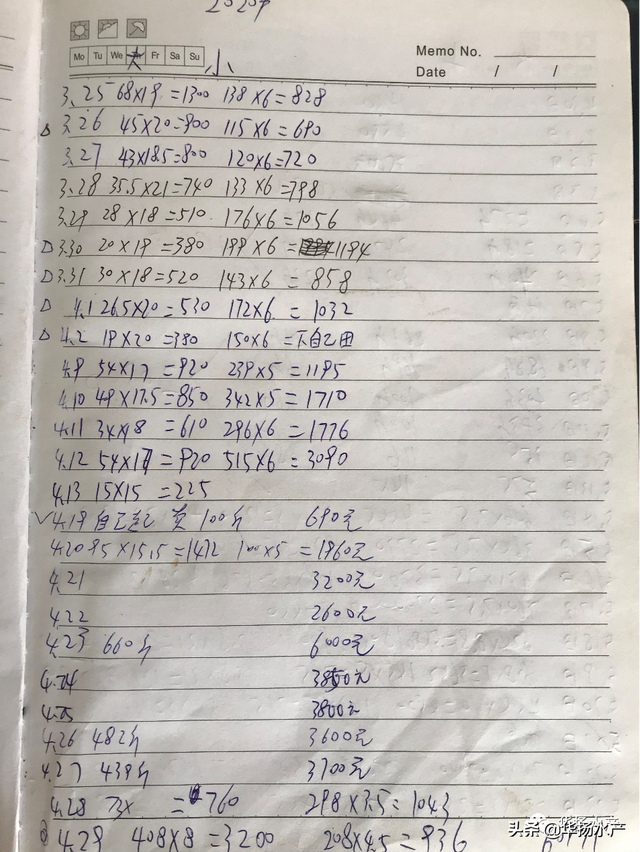 Memo No.
Mo Tu We Fr Sa Su 大 小
Date / /
3.25 68×19=1300 138×6=828
3.26 45×20=900 115×6=690
3.27 43×18.5=800 120×6=720
3.28 35.5×21=740 133×6=798
3.29 28×18=510 176×6=1056
3.30 20×19=380 199×6=1194
3.31 30×18=520 143×6=858
4.1 26.5×20=530 172×6=1032
4.2 19×20=380 150×6=下自己用
4.9 54×17=920 239×5=1195
4.10 49×17.5=850 342×5=1710
4.11 34×18=610 296×6=1776
4.12 54×17=920 515×6=3090
4.13 15×15=225
4.19 自己 100斤 690元
4.20 95×15.5=1472 100×5=1960元
4.21 3200元
4.22 2600元
4.23 660斤 6000元
4.24 3850元
4.25 3800元
4.26 482斤 3600元
4.27 439斤 3700元
4.28 =760 298×3.5=1043
4.29 408×8=3200 208×4.5=936
头条@华扬水产